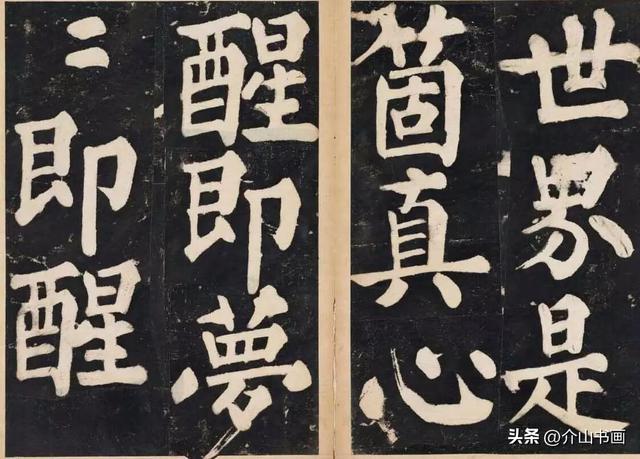 世界是
箇真心
醒即夢
〻即醒
头条 @介山书画